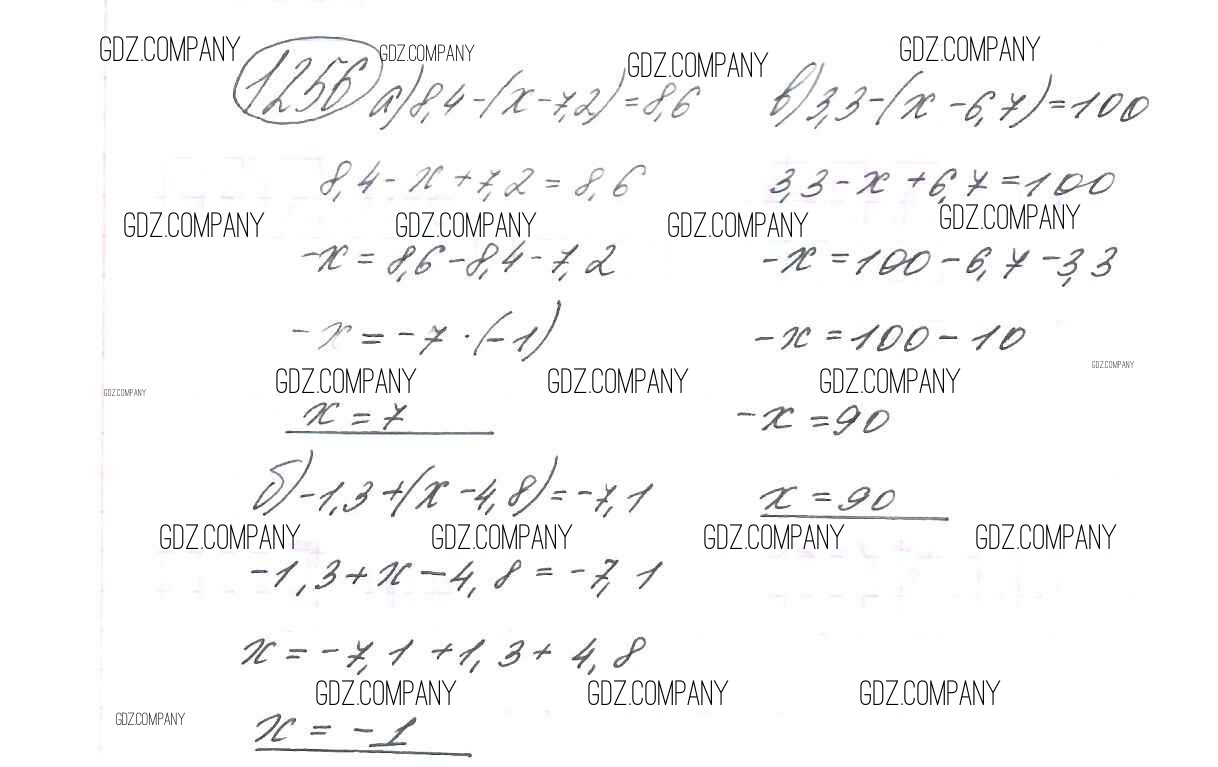 GDZ.COMPANY GDZ.COMPANY GDZ.COMPANY GDZ.COMPANY
1256 а) 8,4-(x-7,2)=8,6
8,4-x+7,2=8,6
GDZ.COMPANY GDZ.COMPANY GDZ.COMPANY GDZ.COMPANY
-x=8,6-8,4-7,2
-x=-7·(-1)
GDZ.COMPANY GDZ.COMPANY GDZ.COMPANY GDZ.COMPANY GDZ.COMPANY
x=7
б) -1,3+(x-4,8)=-7,1
GDZ.COMPANY GDZ.COMPANY GDZ.COMPANY GDZ.COMPANY
-1,3+x-4,8=-7,1
x=-7,1+1,3+4,8
GDZ.COMPANY GDZ.COMPANY GDZ.COMPANY GDZ.COMPANY
x=-1
в) 3,3-(x-6,7)=100
3,3-x+6,7=100
-x=100-6,7-3,3
-x=100-10
-x=90
x=90